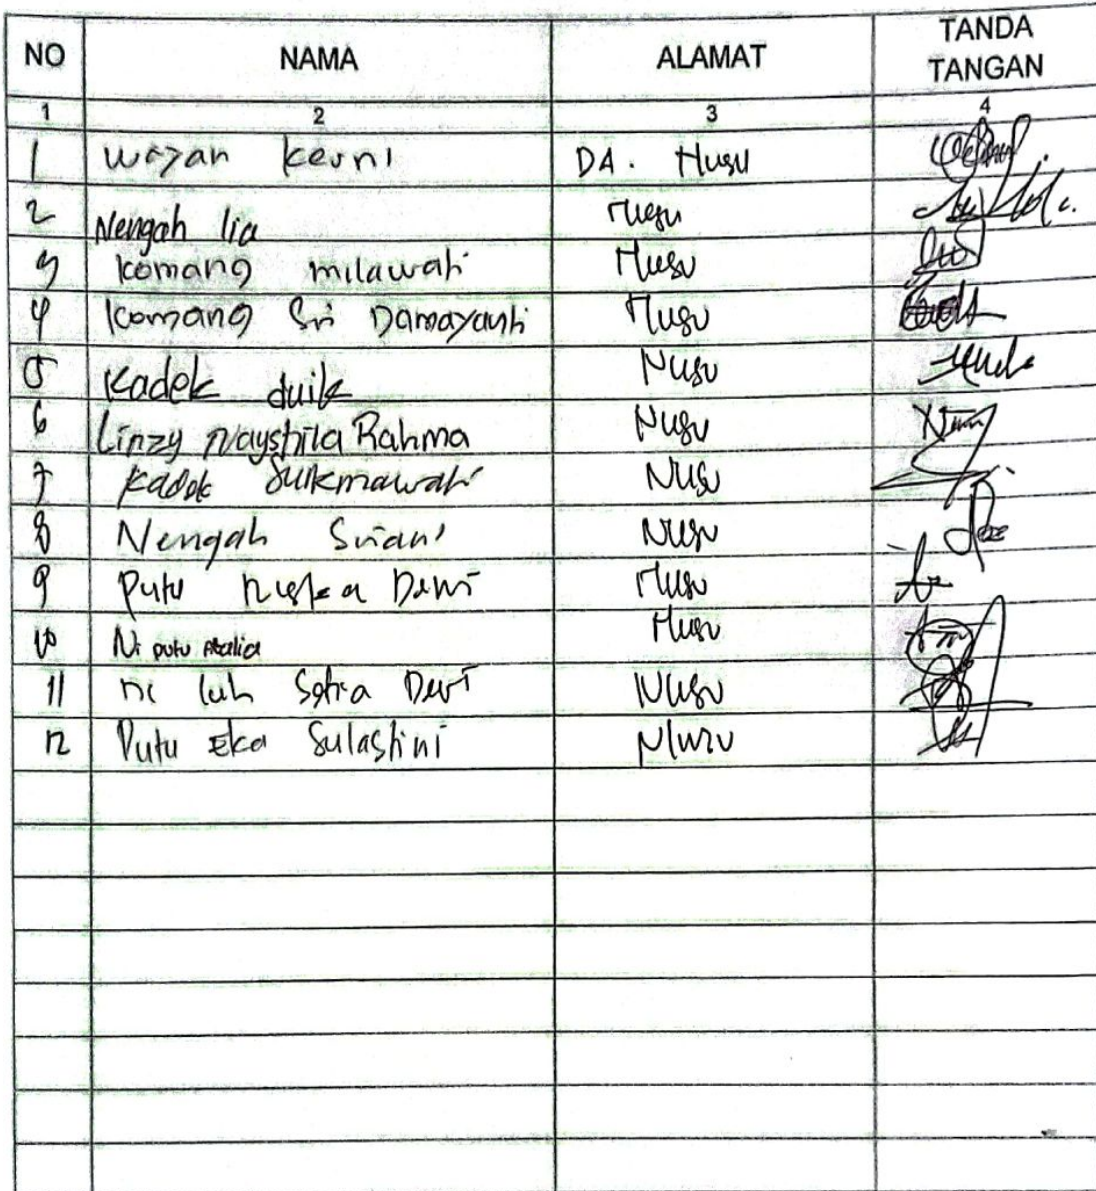 NO NAMA ALAMAT TANDA TANGAN
1 2 3 4
1 Wayan Kerni DA. Nusu
2 Nengah lia Nusu
3 Komang milawati Nusu
4 Komang Sri Damayanti Nusu
5 Kadek duik Nusu
6 Linzy Nayshila Rahma Nusu
7 Kadek Sukmawati Nusu
8 Nengah Sriani Nusu
9 Putu Dewi Nusu
10 Ni putu Atalia Nusu
11 ni luh Satia Dewi Nusu
12 Putu Eka Sulastini